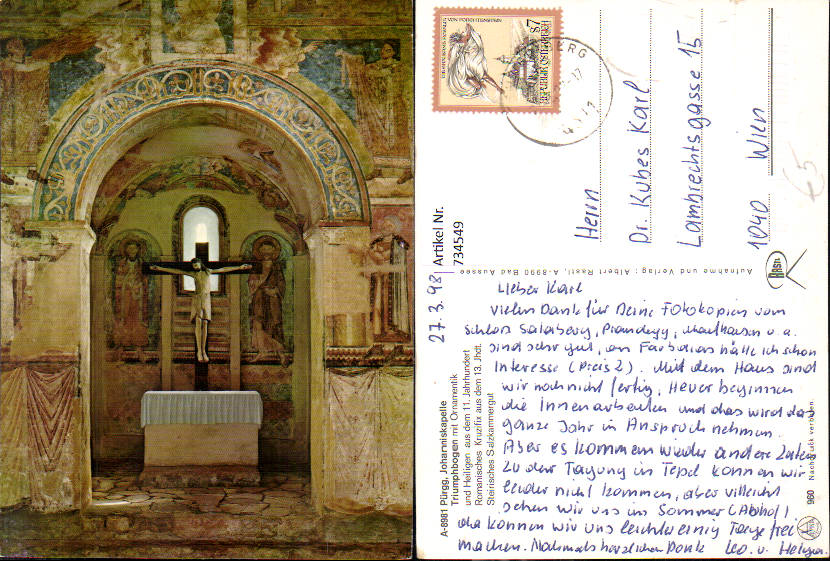 Artikel Nr.
734549
27. 3. 98
Herrn
Dr. Kubes Karl
Lambrechtsgasse 15
1040 Wien
€5
Aufnahme und Verlag: Albert Rastl, A-8990 Bad Aussee
Lieber Karl
vielen Dank für Deine Fotokopien vom
Schloss Salaberg, Prandegg, u. a.
sind sehr gut, an Farbdias hätte ich schon
Interesse (Preis?). Mit dem Haus sind
wir noch nicht fertig, Heuer beginnen
die Innenarbeiten und das wird das
ganze Jahr in Anspruch nehmen.
Aber es kommen wieder andere Zeiten
Zu der Tagung in Tepel können wir
leider nicht kommen, aber vielleicht
sehen wir uns im Sommer
da können wir uns leichter einig Tage frei
machen. Nochmals herzlichen Dank Leo. u. Helga.
A-8981 Pürgg, Johanniskapelle
Triumphbogen mit Ornamentik
und Heiligen aus dem 11. Jahrhundert
Romanisches Kruzifix aus dem 13. Jhdt.
Steirisches Salzkammergut
960 Nachdruck verboten.
REPUBLIK ÖSTERREICH
S7